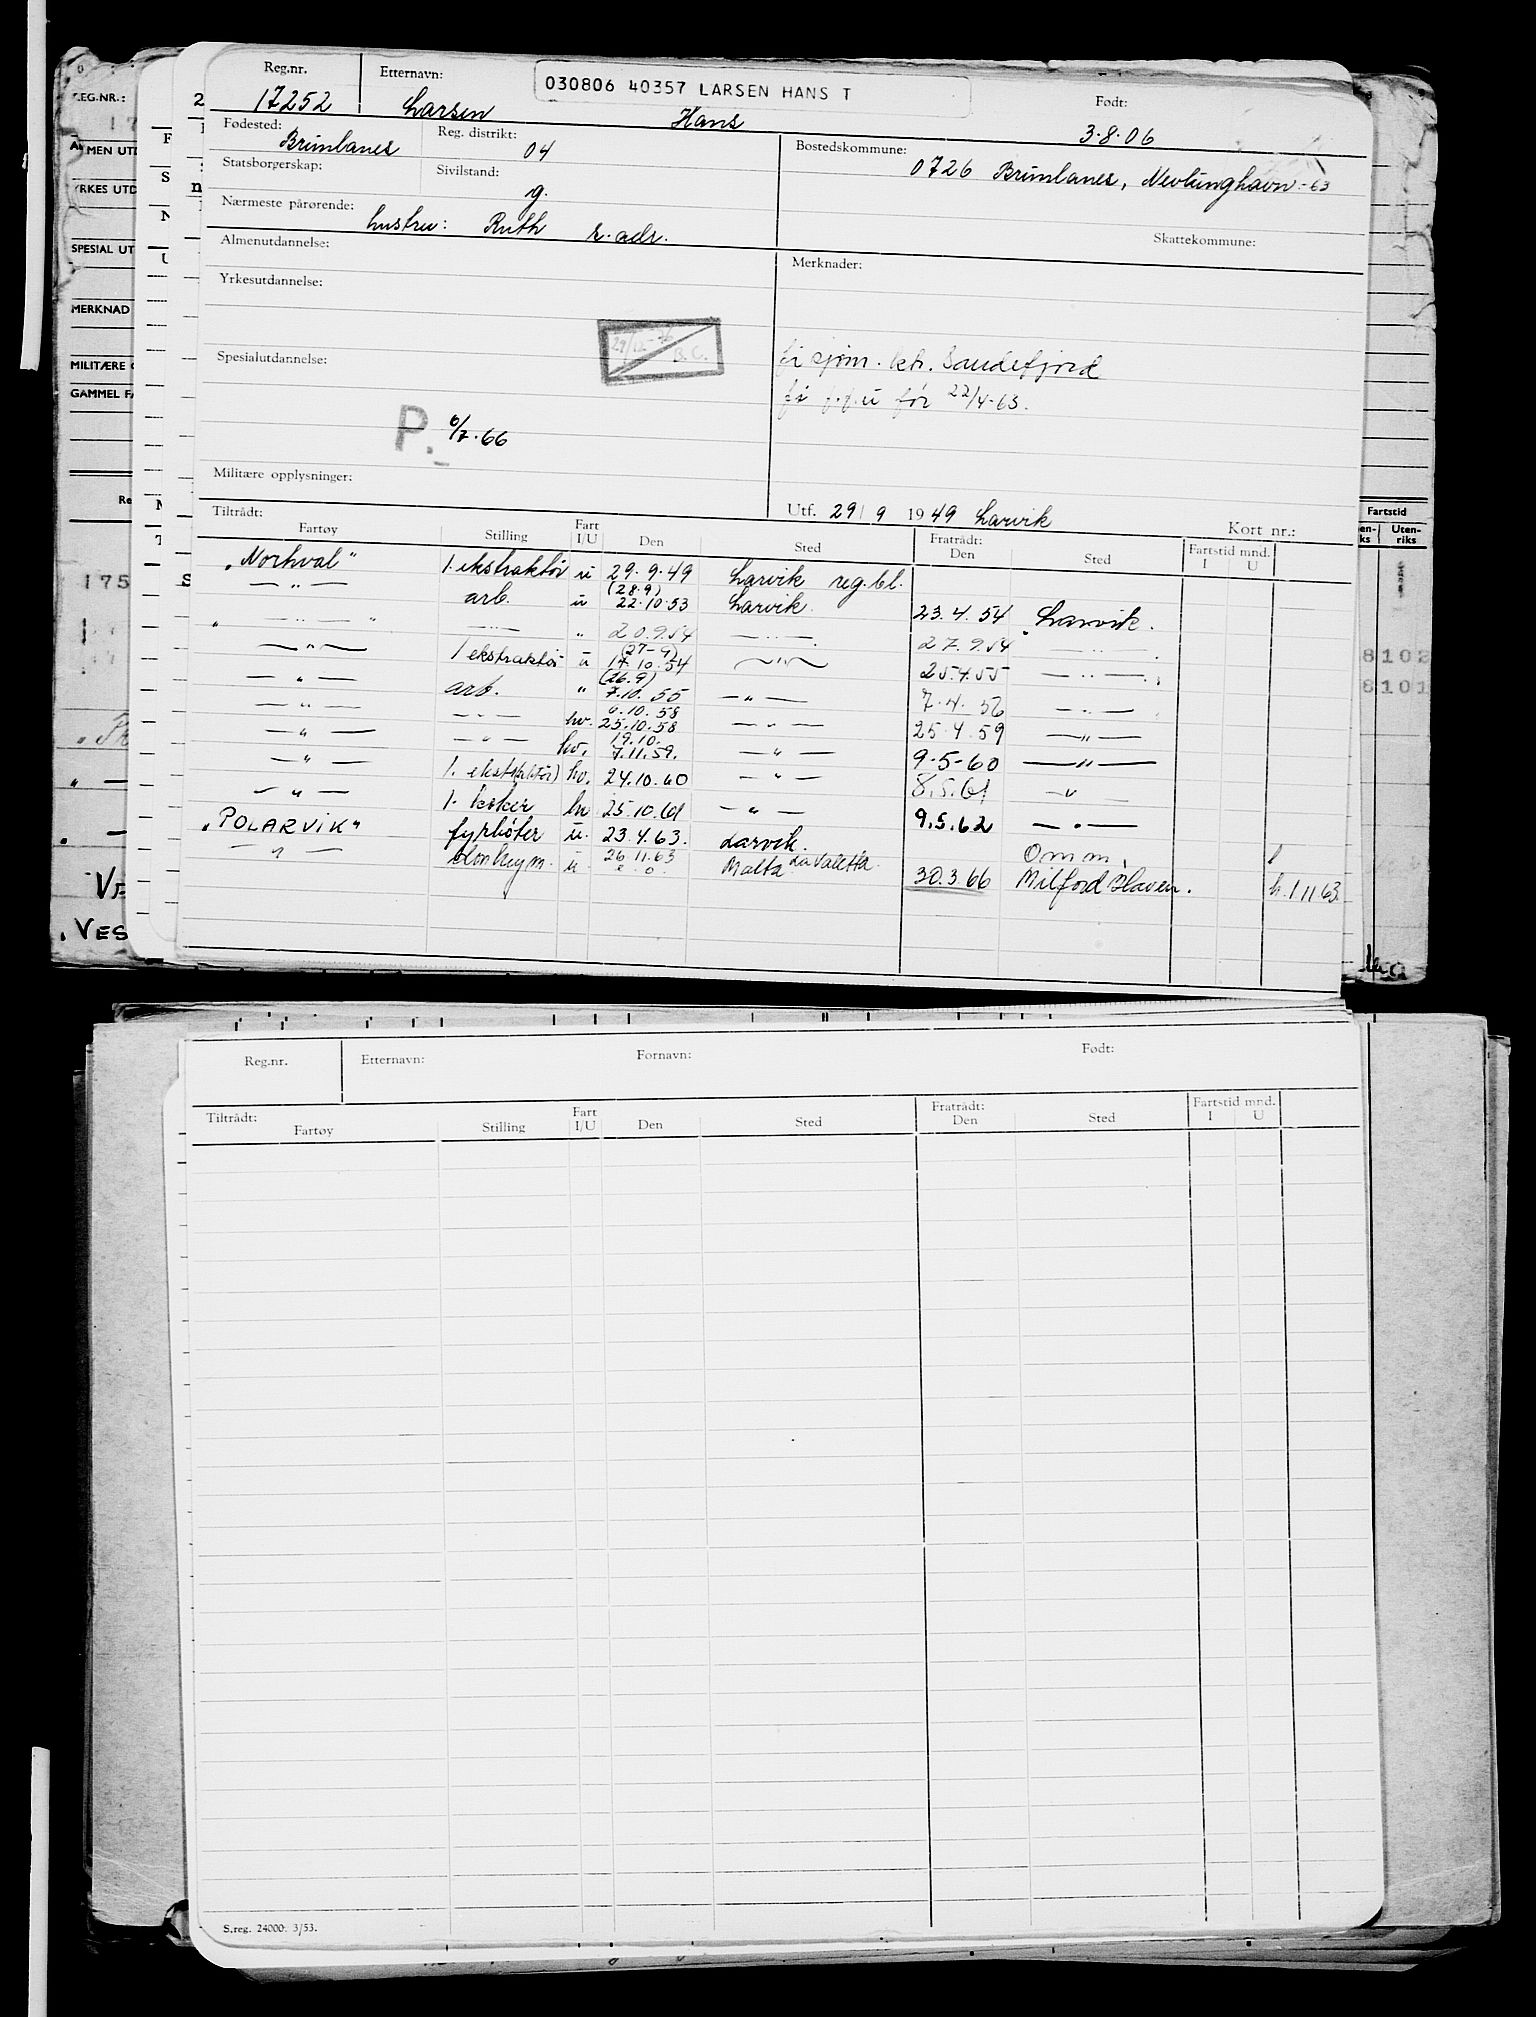 Reg.nr. Etternavn: 030806 40357 LARSEN HANS T Født:
17252 Larsen Hans 3.8.06
Fødested: Reg. distrikt: Bostedskommune:
Brunlanes 04 0726 Brunlanes, Nevlunghavn -63
Statsborgerskap: Sivilstand:
g.
Nærmeste pårørende:
hustru: Ruth s. adr.
Skattekommune:
Almenutdannelse: Merknader:
Yrkesutdannelse:
B.C.
Spesialutdannelse:
fi sjøm. ktr. Sandefjord
fi før 22/4-63.
P. 6/7.66
Militære opplysninger:
Utf. 29/9 1949 Larvik
Kort nr.:
Tiltrådt: Fratrådt: Fartstid mnd.
Fartøy Stilling Fart I/U Den Sted Den Sted I U
"Norhval" 1. ekstraktør u 29.9.49 Larvik reg.bl.
— " — arb. u (28.9) 22.10.53 Larvik. 23.4.54 Larvik.
" — " — " — " — " 20.9.54 — " — 27.9.54 — " —
— " — 1 ekstraktør u (27-9) 17.10.54 — " — 25.4.55 — " —
— " — arb. " (26.9) 7.10.55 — " — 7.4.56 — " —
— " — — " — hv. 6.10.58 25.10.58 — " — 25.4.59 — " —
— " — — " — hv. 19.10. 7.11.59. — " — 9-5-60 — " —
— " — 1. ekstr(aktør) hv. 24.10.60 — " — 8.5.61 — " —
— " — 1. koker hv 25.10.61 — " — 9.5.62 — " —
"POLARVIK" fyrbøter u. 23.4.63. Larvik. Omm.
— " — donkeym. u 26.11.63 Malta La Valetta. 30.3.66 Milford Haven. h.1 11 63.
REG.NR.:
YRKES UTD
SPESIAL UT
MERKNAD
MILITÆRE
GAMMEL FA
175
VES
Fartstid
Uten-riks
8102
8101
Reg.nr. Etternavn: Fornavn: Født:
Tiltrådt: Fratrådt: Fartstid mnd.
Fartøy Stilling Fart I/U Den Sted Den Sted I U
S.reg. 24000. 3/53.